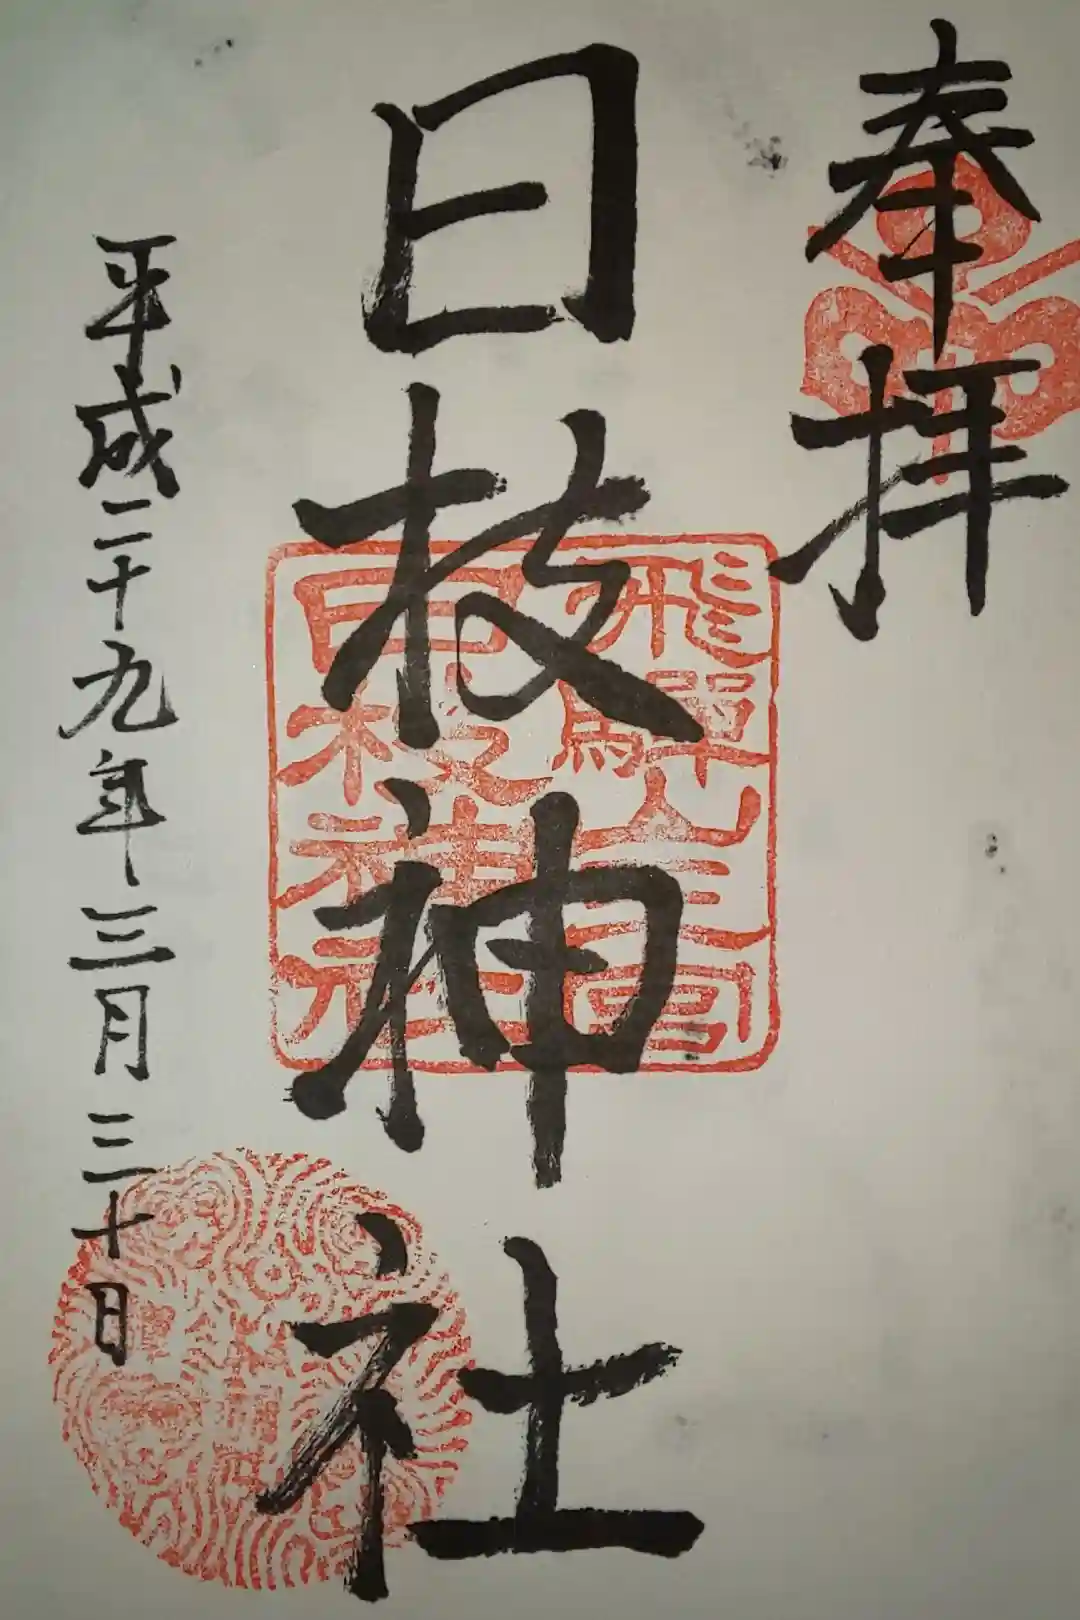 奉拝
飛騨山王宮
日枝神社
日枝神社
平成二十九年三月三十日